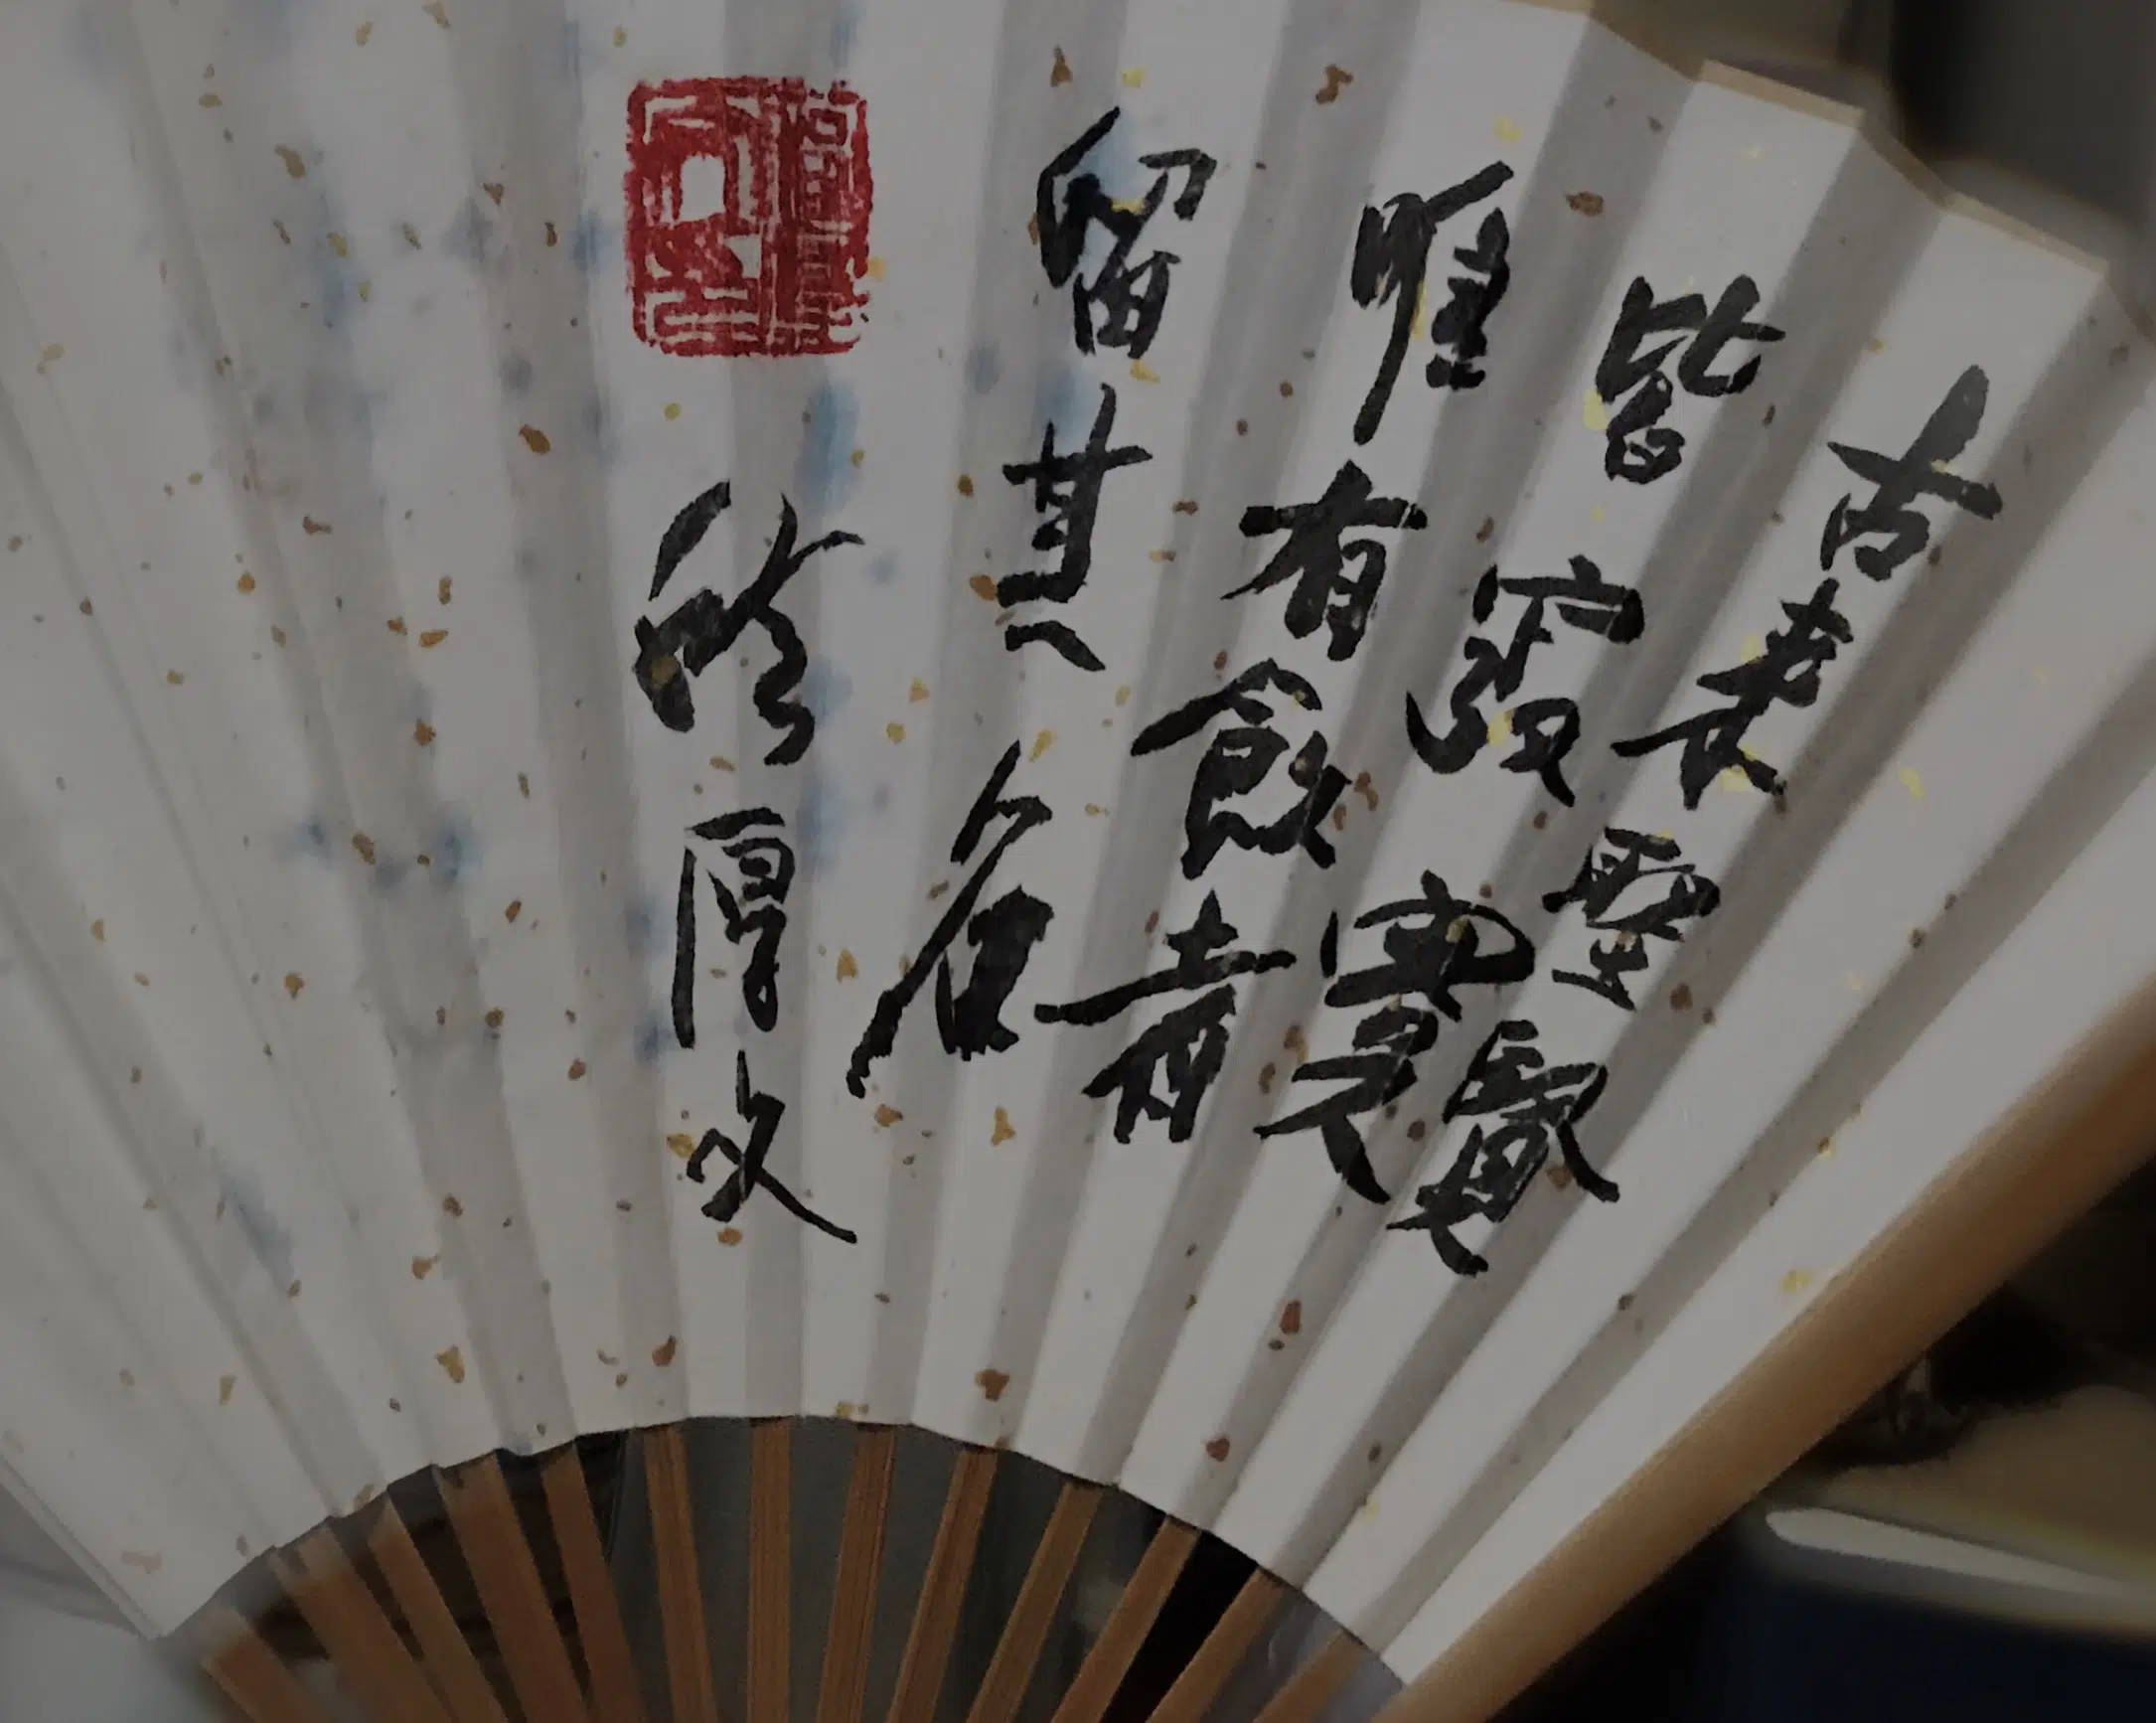 古来聖賢
皆寂寞
唯有飲者
留其名
厚文